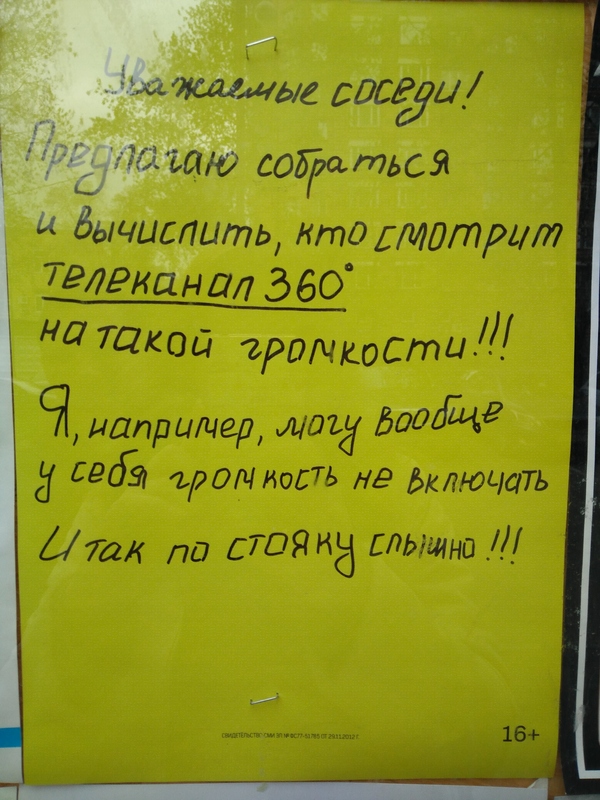 Уважаемые соседи!
Предлагаю собраться
и вычислить, кто смотрит
телеканал 360°
на такой громкости!!!
Я, например, могу вообще
у себя громкость не включать
И так по стояку слышно!!!
16+